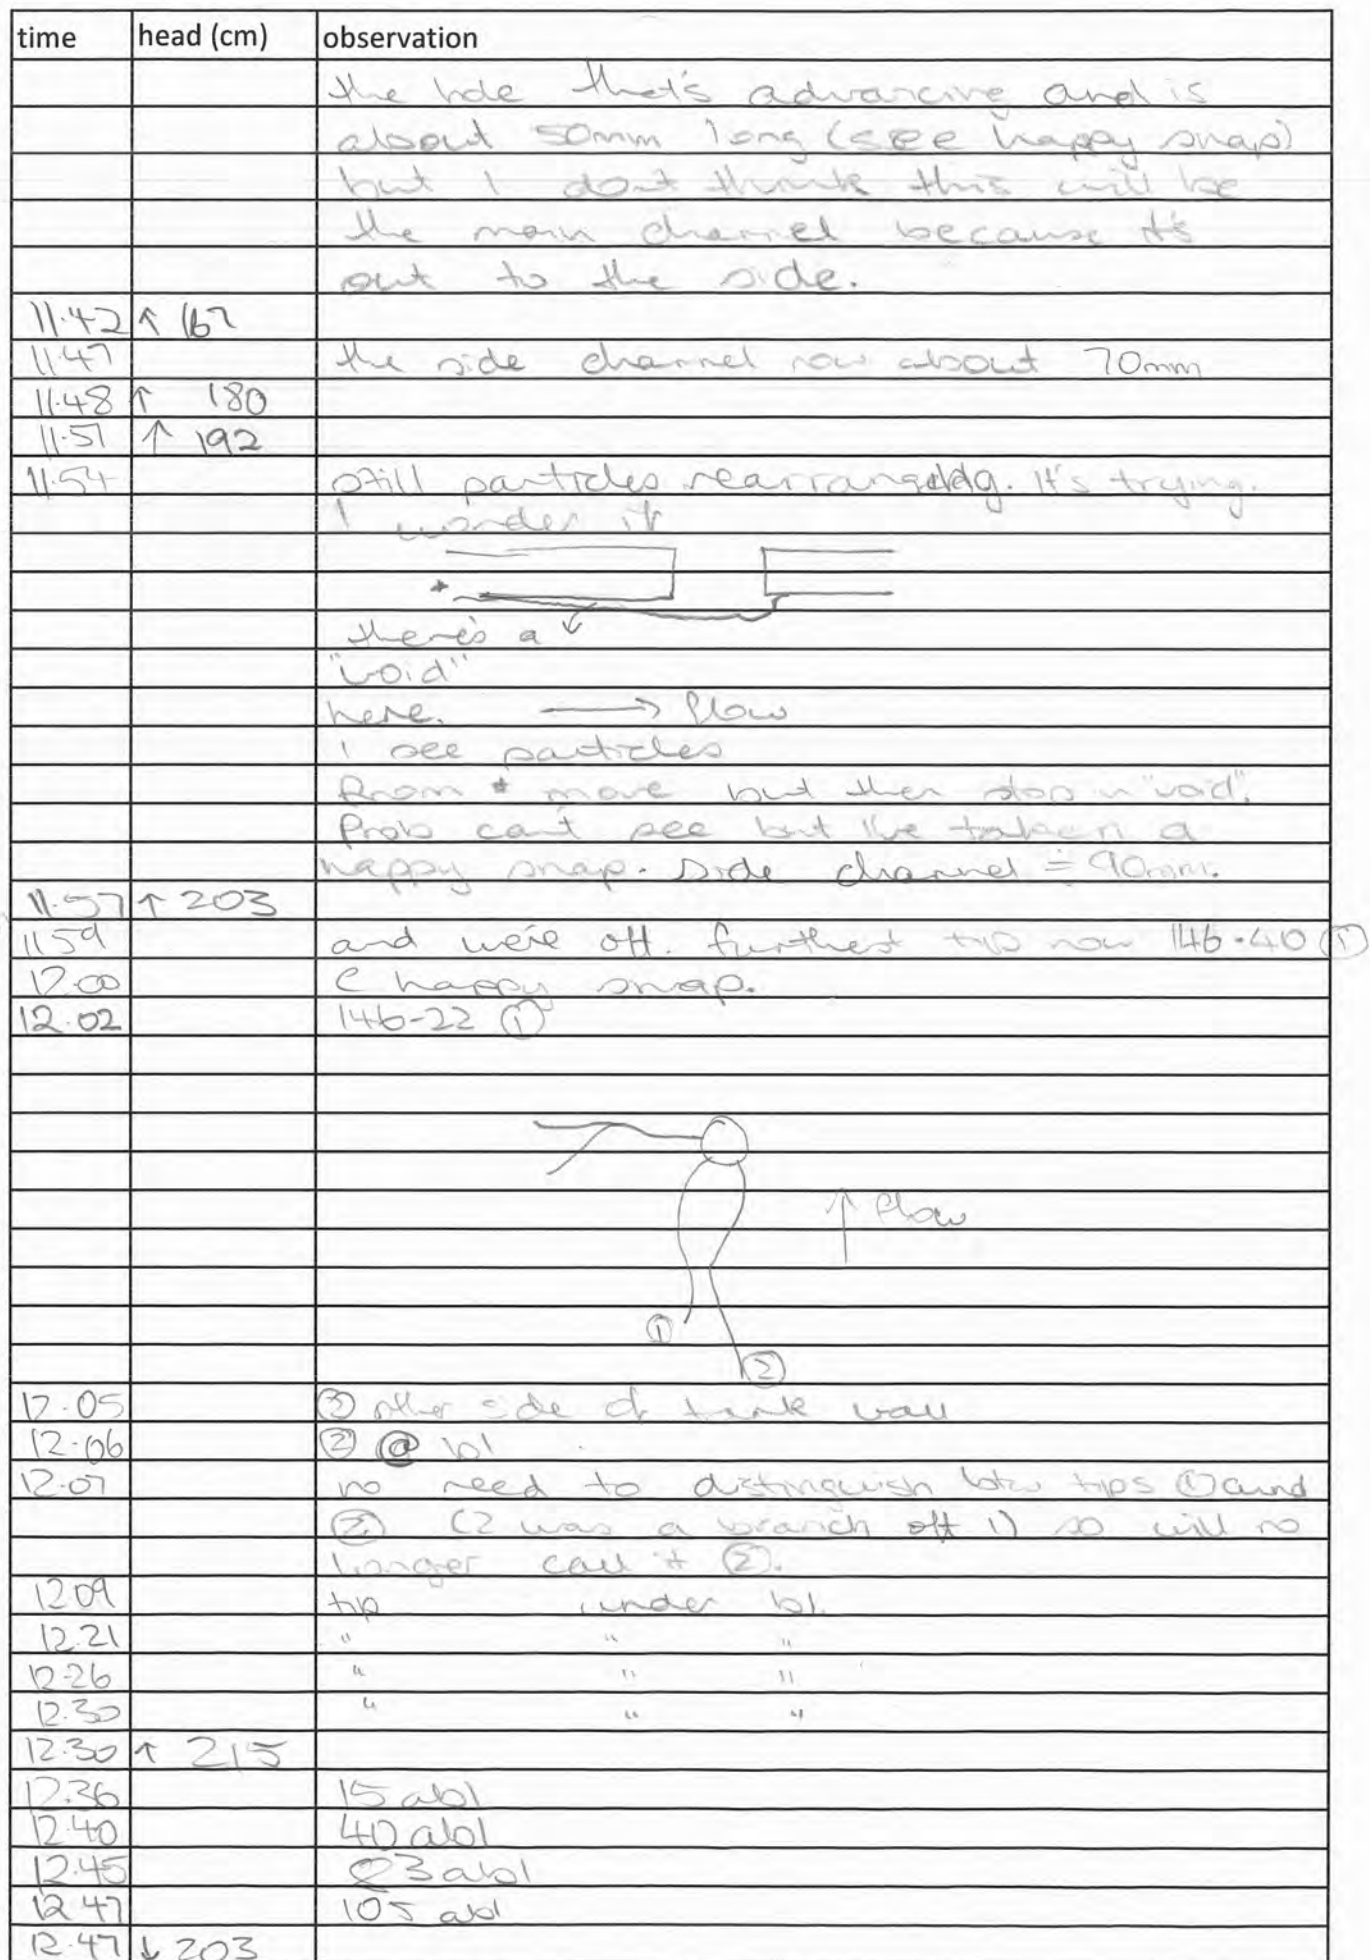 time head (cm) observation
the hole that's advancing and is
about 50mm long (see happy snap)
but I dont think this will be
the main channel because it's
out to the side.
11.42 ↑ 167
11.47 the side channel now about 70mm
11.48 ↑ 180
11.51 ↑ 192
11.54 still particles rearranging. It's trying.
I wonder if
*
there's a
"void"
here. → flow
I see particles
from * move but then stop in "void".
Prob can't see but I've taken a
happy snap. Side channel ≐ 90mm.
11.57 ↑ 203
11.59 and we're off. furthest tip now 146-40 ①
12.00 happy snap.
12.02 146-22 ①
↑ flow
①
②
12.05 other side of tank wall
12.06 ② @ bl
12.07 no need to distinguish btw tips ① and
② (2 was a branch off 1) so will no
longer call it ②.
12.09 tip under bl.
12.21 " " "
12.26 " " "
12.30 " " "
12.30 ↑ 215
12.36 15 abl
12.40 40 abl
12.45 abl
12.47 105 abl
12.47 ↓ 203